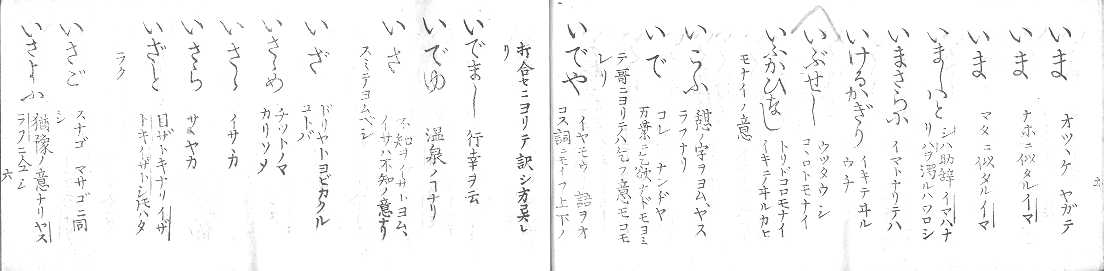 いま オツヽケ ヤガテ
いま ナホニ似タルイマ
いま マタニ似タルイマ
いましはと シハ助辞イマハナ
リハヲ濁ルハワロシ
いまさらふ イマトナリテハ
いけるかぎり イキテヰル
ウチ
いぶせし ウツタウシ
コヽロトモナイ
いふかひなし トリドコロモナイ
イキニヰルカヒ
モナイノ意
いこふ 憩ノ字ヲヨム、ヤス
ラフナリ
いで コレ ナンヂヤ
万葉ニ乞欲ナドモヨミ
テ哥ニヨリテハ乞フ意モコモ
レリ
いでや イヤモウ 語ヲオ
コス詞ニモイフ上下ノ
打合セニヨリテ訳シ方異レ
リ
いでまし 行幸ヲ云
いでゆ 温泉ノコナリ
いさ 不知ヲイサトヨム、
イサハ不知ノ意ナリ
スミテヨムベシ
いざ ドリヤトヨビカクル
コトバ
いさゝめ チツトノマ
カリソメ
いさゝ イサヽカ
いさら サヽヤカ
いざと 目ザトキナリイザ
トキ
ラク
いさご スナゴ マサゴニ同
シ
いさよふ 猶豫ノ意ナリヤス
ラフニ同シ
六